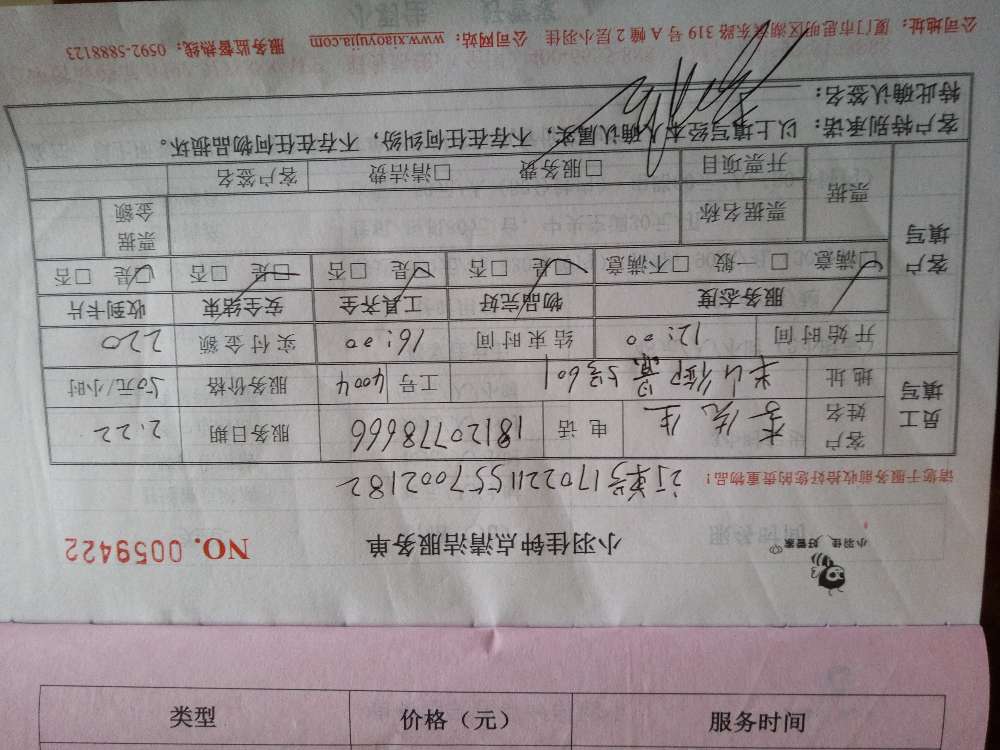 小羽佳，好管家
小羽佳钟点清洁服务单 NO. 0059422
请您于服务前收拾好您的贵重物品！ 订单号1702211557002182
员工填写
客户姓名 李先生 电话 18120778666 服务日期 2.22
地址 5号601 工号 4004 服务价格 50元/小时
开始时间 12:00 结束时间 16:00 实付金额 220
客户填写
服务态度 物品完好 工具齐全 安全结束 收到卡片
□满意 □一般 □不满意 □是 □否 □是 □否 □是 □否 □是 □否
票据 票据名称 票据金额
开票项目 □服务费 □清洁费 客户签名
客户特别承诺：以上填写经本人确认属实，不存在任何纠纷，不存在任何物品损坏。
特此确认签名：
公司地址：厦门市思明区湖滨东路319号A幢2层小羽佳 公司网站：www.xiaoyujia.com 服务监督热线：0592-5888123
类型 价格（元） 服务时间